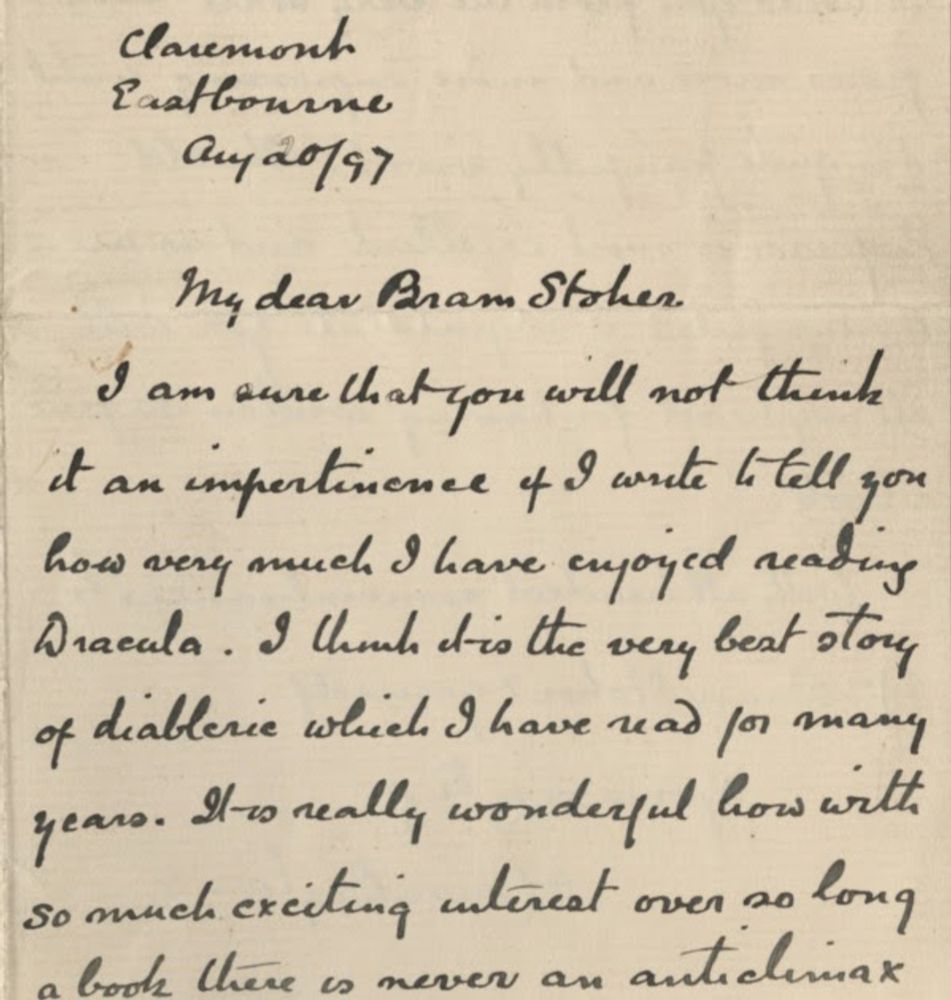 Claremont
Eastbourne
Aug 20/97
My dear Bram Stoker.
I am sure that you will not think
it an impertinence if I write to tell you
how very much I have enjoyed reading
Dracula. I think it is the very best story
of diablerie which I have read for many
years. It is really wonderful how with
so much exciting interest over so long
a book there is never an anticlimax